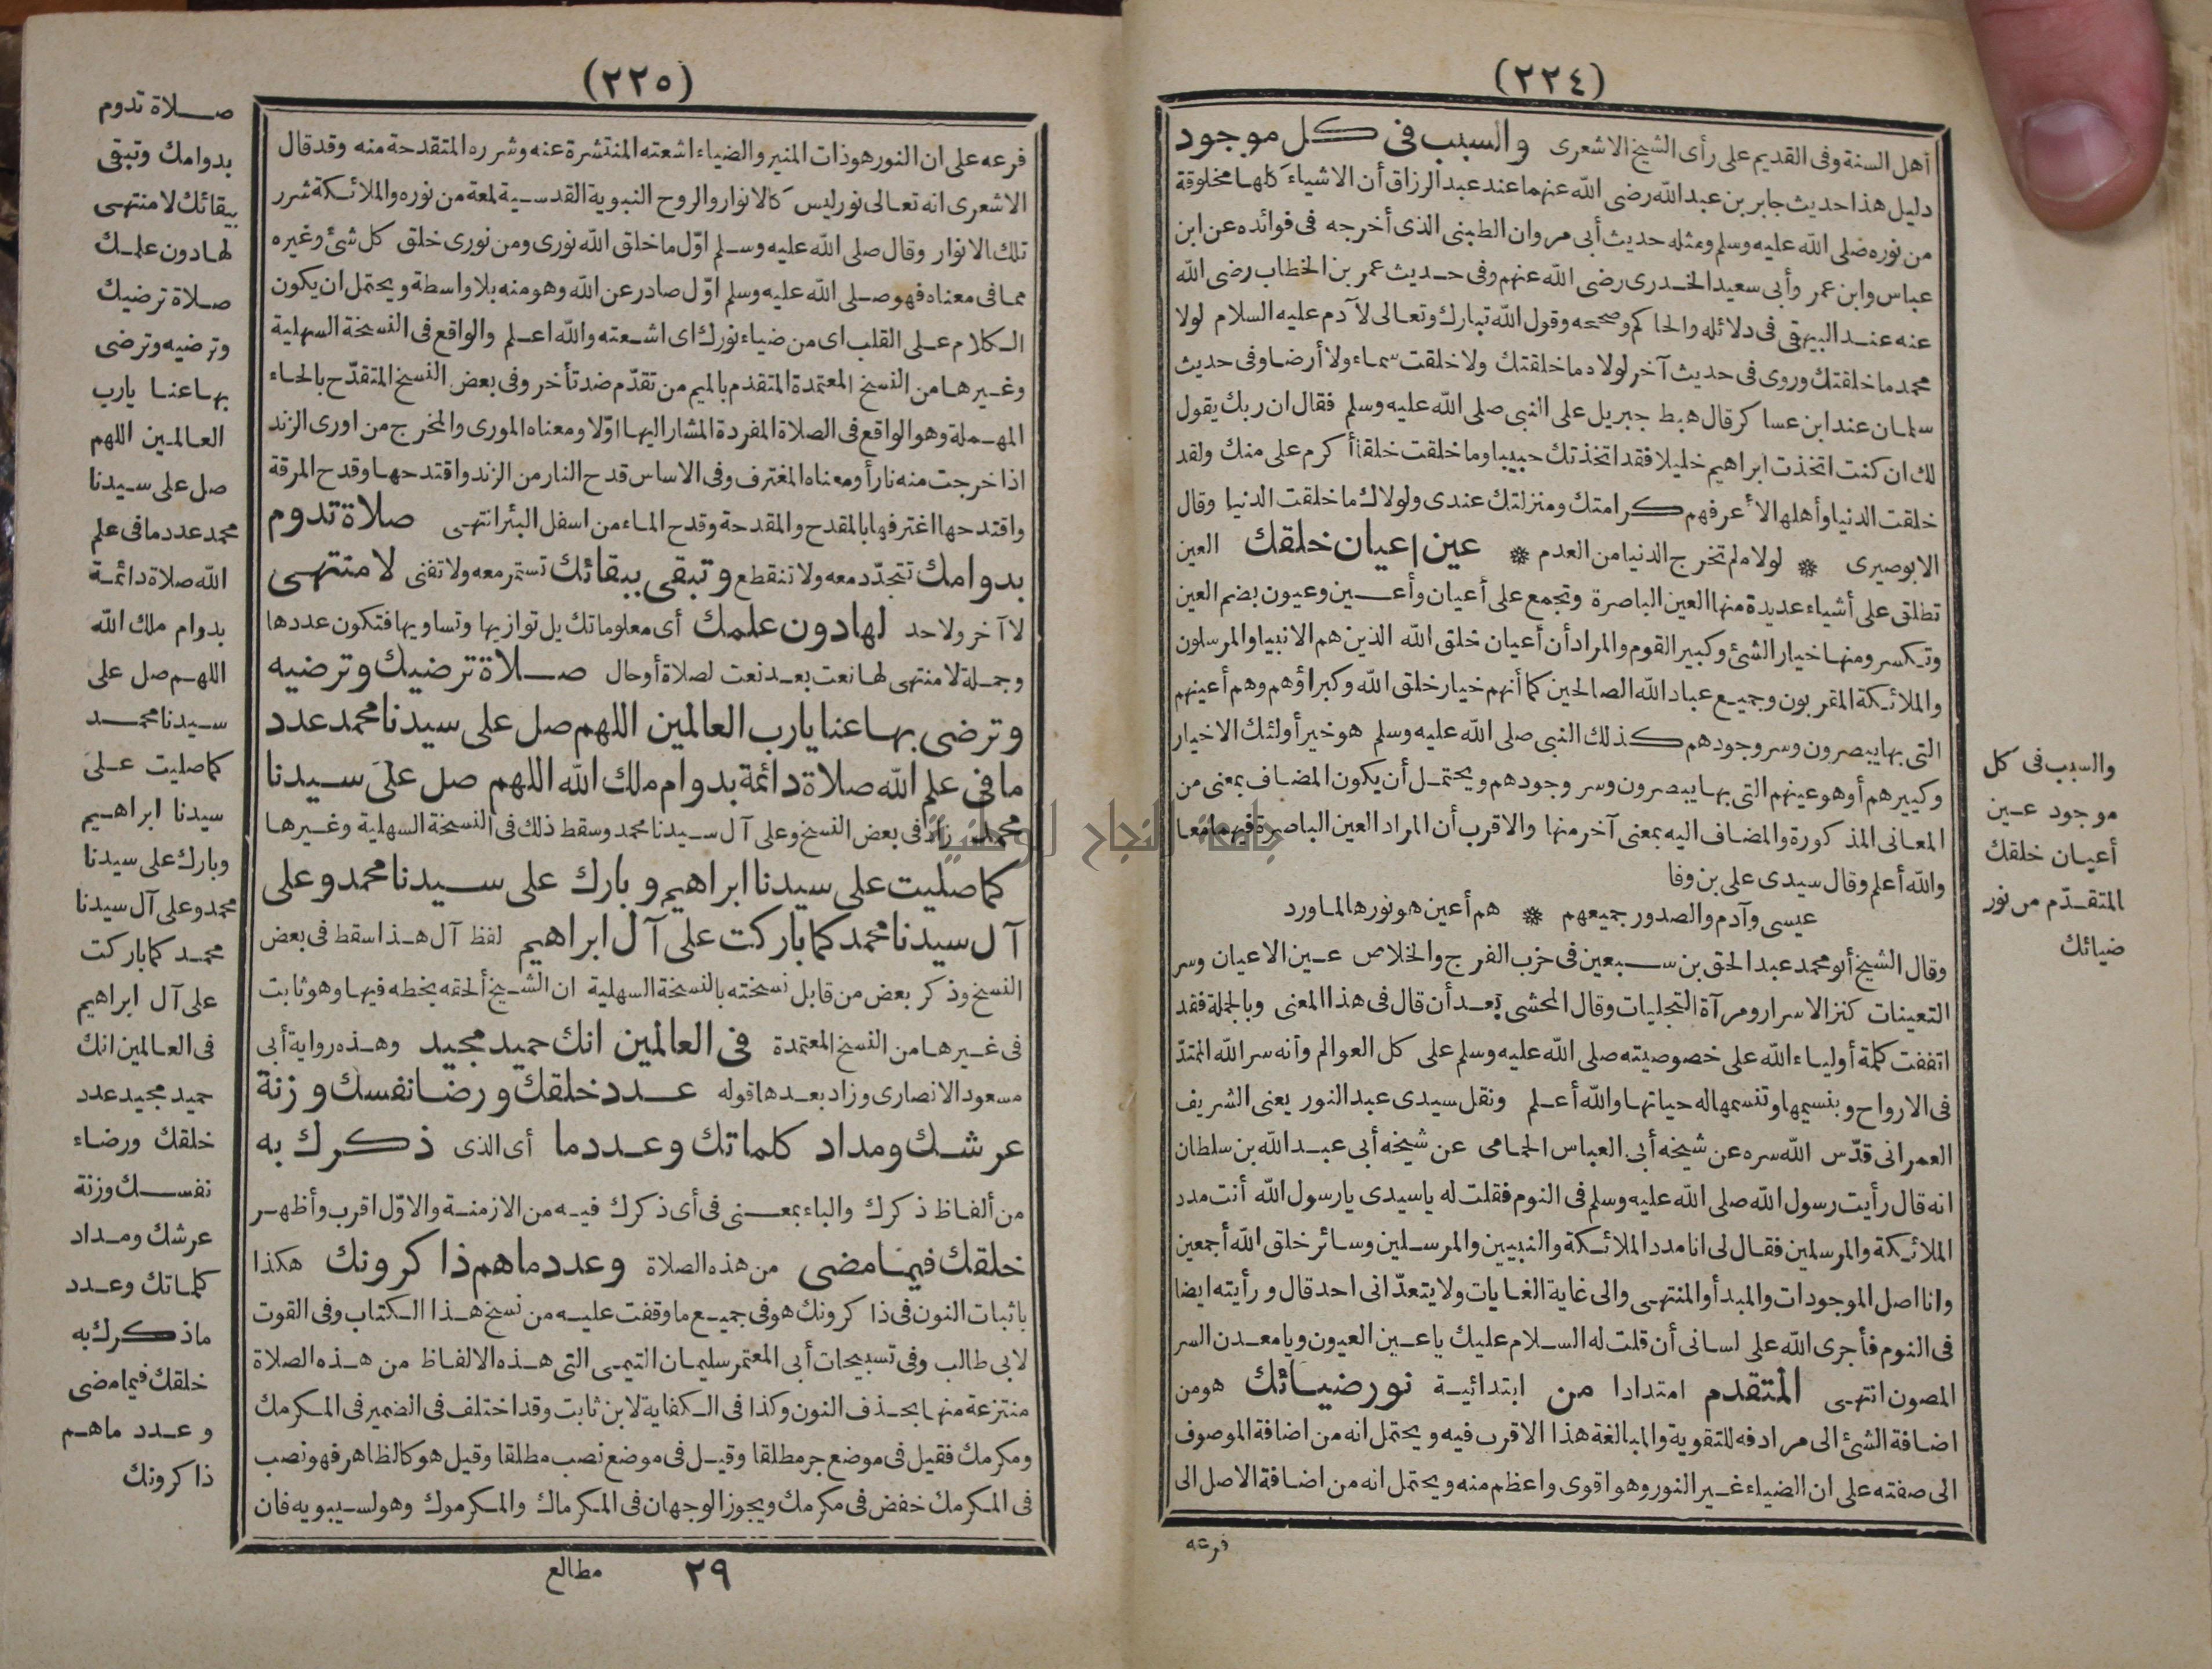 (٢٢٤)
أهل السنة وفى القديم على رأى الشيخ الاشعرى والسبب فى كل موجود
دليل هذا حديث جابر بن عبد الله رضى الله عنهما عند عبد الرزاق أن الاشياء كلها مخلوقة
من نوره صلى الله عليه وسلم ومثله حديث أبى مروان الطبنى الذى أخرجه فى فوائده عن ابن
عباس وابن عمر وأبى سعيد الخدرى رضى الله عنهم وفى حديث عمر بن الخطاب رضى الله
عنه عند البيهقى فى دلائله والحاكم وصححه وقول الله تبارك وتعالى لآدم عليه السلام لولا
محمد ما خلقتك وروى فى حديث آخر لولاه ما خلقتك ولا خلقت سماء ولا أرضا وفى حديث
سلمان عند ابن عساكر قال هبط جبريل على النبى صلى الله عليه وسلم فقال ان ربك يقول
لك ان كنت اتخذت ابراهيم خليلا فقد اتخذتك حبيبا وما خلقت خلقا أكرم على منك ولقد
خلقت الدنيا وأهلها الا أعرفهم كرامتك ومنزلتك عندى ولولاك ما خلقت الدنيا وقال
الابوصيرى ❋ لولاه لم تخرج الدنيا من العدم ❋ عين اعيان خلقك العين
تطلق على أشياء عديدة منها العين الباصرة وتجمع على أعيان وأعين وعيون بضم العين
وتكسر ومنها خيار الشئ وكبير القوم والمراد أن أعيان خلق الله الذين هم الانبيا والمرسلون
والملائكة المقربون وجميع عباد الله الصالحين كما أنهم خيار خلق الله وكبراؤهم وهم أعينهم
التى بها يبصرون وسر وجودهم كذلك النبى صلى الله عليه وسلم هو خير أولئك الاخيار
وكبيرهم أو هو عينهم التى بها يبصرون وسر وجودهم ويحتمل أن يكون المضاف بمعنى من
المعانى المذكورة والمضاف اليه بمعنى آخر منها والاقرب أن المراد العين الباصرة فيهما معا
والله أعلم وقال سيدى على بن وفا
عيسى وآدم والصدور جميعهم ❋ هم أعين هو نورها لما ورد
وقال الشيخ أبو محمد عبد الحق بن سبعين فى حزب الفرج والخلاص عين الاعيان وسر
التعينات كنز الاسرار ومرآة التجليات وقال المحشى بعد أن قال فى هذا المعنى وبالجملة فقد
اتفقت كلمة أولياء الله على خصوصيته صلى الله عليه وسلم على كل العوالم وأنه سر الله الممتد
فى الارواح وبنسيمها وتنسمها له حياتها والله أعلم ونقل سيدى عبد النور يعنى الشريف
العمرانى قدّس الله سره عن شيخه أبى العباس الحامى عن شيخه أبى عبد الله بن سلطان
انه قال رأيت رسول الله صلى الله عليه وسلم فى النوم فقلت له يا سيدى يا رسول الله أنت مدد
الملائكة والمرسلين فقال لى انا مدد الملائكة والنبيين والمرسلين وسائر خلق الله أجمعين
وانا اصل الموجودات والمبدأ والمنتهى والى غاية الغايات ولا يتعدّانى احد قال ورأيته ايضا
فى النوم فأجرى الله على لسانى أن قلت له السلام عليك يا عين العيون ويا معدن السر
المصون انتهى المتقدم امتدادا من ابتدائية نور ضيائك هو من
اضافة الشئ الى مرادفه للتقوية والمبالغة هذا الاقرب فيه ويحتمل انه من اضافة الموصوف
الى صفته على ان الضياء غير النور وهو اقوى واعظم منه ويحتمل انه من اضافة الاصل الى
فرعه
والسبب فى كل
موجود عين
أعيان خلقك
المتقدّم من نور
ضيائك
(٢٢٥)
فرعه على ان النور هو ذات المنير والضياء اشعته المنتشرة عنه وشرره المتقدحة منه وقد قال
الاشعرى انه تعالى نور ليس كالانوار والروح النبوية القدسية لمعة من نوره والملائكة شرر
تلك الانوار وقال صلى الله عليه وسلم اوّل ما خلق الله نورى ومن نورى خلق كل شئ وغيره
مما فى معناه فهو صلى الله عليه وسلم اوّل صادر عن الله وهو منه بلا واسطة ويحتمل ان يكون
الكلام على القلب اى من ضياء نورك اى اشعته والله اعلم والواقع فى النسخة السهلية
وغيرها من النسخ المعتمدة المتقدم بالميم من تقدّم ضد تأخر وفى بعض النسخ المتقدّح بالحاء
المهملة وهو الواقع فى الصلاة المفردة المشار اليها اوّلا ومعناه المورى والمخرج من اورى الزند
اذا خرجت منه نار أو معناه المغترف وفى الاساس قدح النار من الزند واقتدحها وقدح المرقة
واقتدحها اغترفها بالمقدح والمقدحة وقدح الماء من اسفل البئر انتهى صلاة تدوم
بدوامك تتجدّد معه ولا تنقطع وتبقى ببقائك تستمر معه ولا تفنى لا منتهى
لا آخر ولا حد لها دون علمك أى معلوماتك بل توازيها وتساويها فتكون عددها
وجملة لا منتهى لها نعت بعد نعت لصلاة أو حال صلاة ترضيك وترضيه
وترضى بها عنا يا رب العالمين اللهم صل على سيدنا محمد عدد
ما فى علم الله صلاة دائمة بدوام ملك الله اللهم صل على سيدنا
محمد زاد فى بعض النسخ وعلى آل سيدنا محمد وسقط ذلك فى النسخة السهلية وغيرها
كما صليت على سيدنا ابراهيم وبارك على سيدنا محمد وعلى
آل سيدنا محمد كما باركت على آل ابراهيم لفظ آل هذا سقط فى بعض
النسخ وذكر بعض من قابل نسخته بالنسخة السهلية ان الشيخ ألحقه بخطه فيها وهو ثابت
فى غيرها من النسخ المعتمدة فى العالمين انك حميد مجيد وهذه رواية أبى
مسعود الانصارى وزاد بعدها قوله عدد خلقك ورضا نفسك وزنة
عرشك ومداد كلماتك وعدد ما أى الذى ذكرك به
من ألفاظ ذكرك والباء بمعنى فى أى ذكرك فيه من الازمنة والاوّل اقرب وأظهر
خلقك فيما مضى من هذه الصلاة وعدد ما هم ذاكرونك هكذا
باثبات النون فى ذاكرونك هو فى جميع ما وقفت عليه من نسخ هذا الكتاب وفى القوت
لابى طالب وفى تسبيحات أبى المعتمر سليمان التيمى التى هذه الالفاظ من هذه الصلاة
منتزعة منها بحذف النون وكذا فى الكفاية لابن ثابت وقد اختلف فى الضمير فى المكرمك
ومكرمك فقيل فى موضع جر مطلقا وقيل فى موضع نصب مطلقا وقيل هو كالظاهر فهو نصب
فى المكرمك خفض فى مكرمك ويجوز الوجهان فى المكرماك والمكرموك وهو لسيبويه فان
٢٩ مطالع
صلاة تدوم
بدوامك وتبقى
ببقائك لا منتهى
لها دون علمك
صلاة ترضيك
وترضيه وترضى
بها عنا يارب
العالمين اللهم
صل على سيدنا
محمد عدد ما فى علم
الله صلاة دائمة
بدوام ملك الله
اللهم صل على
سيدنا محمد
كما صليت على
سيدنا ابراهيم
وبارك على سيدنا
محمد وعلى آل سيدنا
محمد كما باركت
على آل ابراهيم
فى العالمين انك
حميد مجيد عدد
خلقك ورضاء
نفسك وزنة
عرشك ومداد
كلماتك وعدد
ما ذكرك به
خلقك فيما مضى
وعدد ما هم
ذاكرونك
جامعة النجاح الوطنية